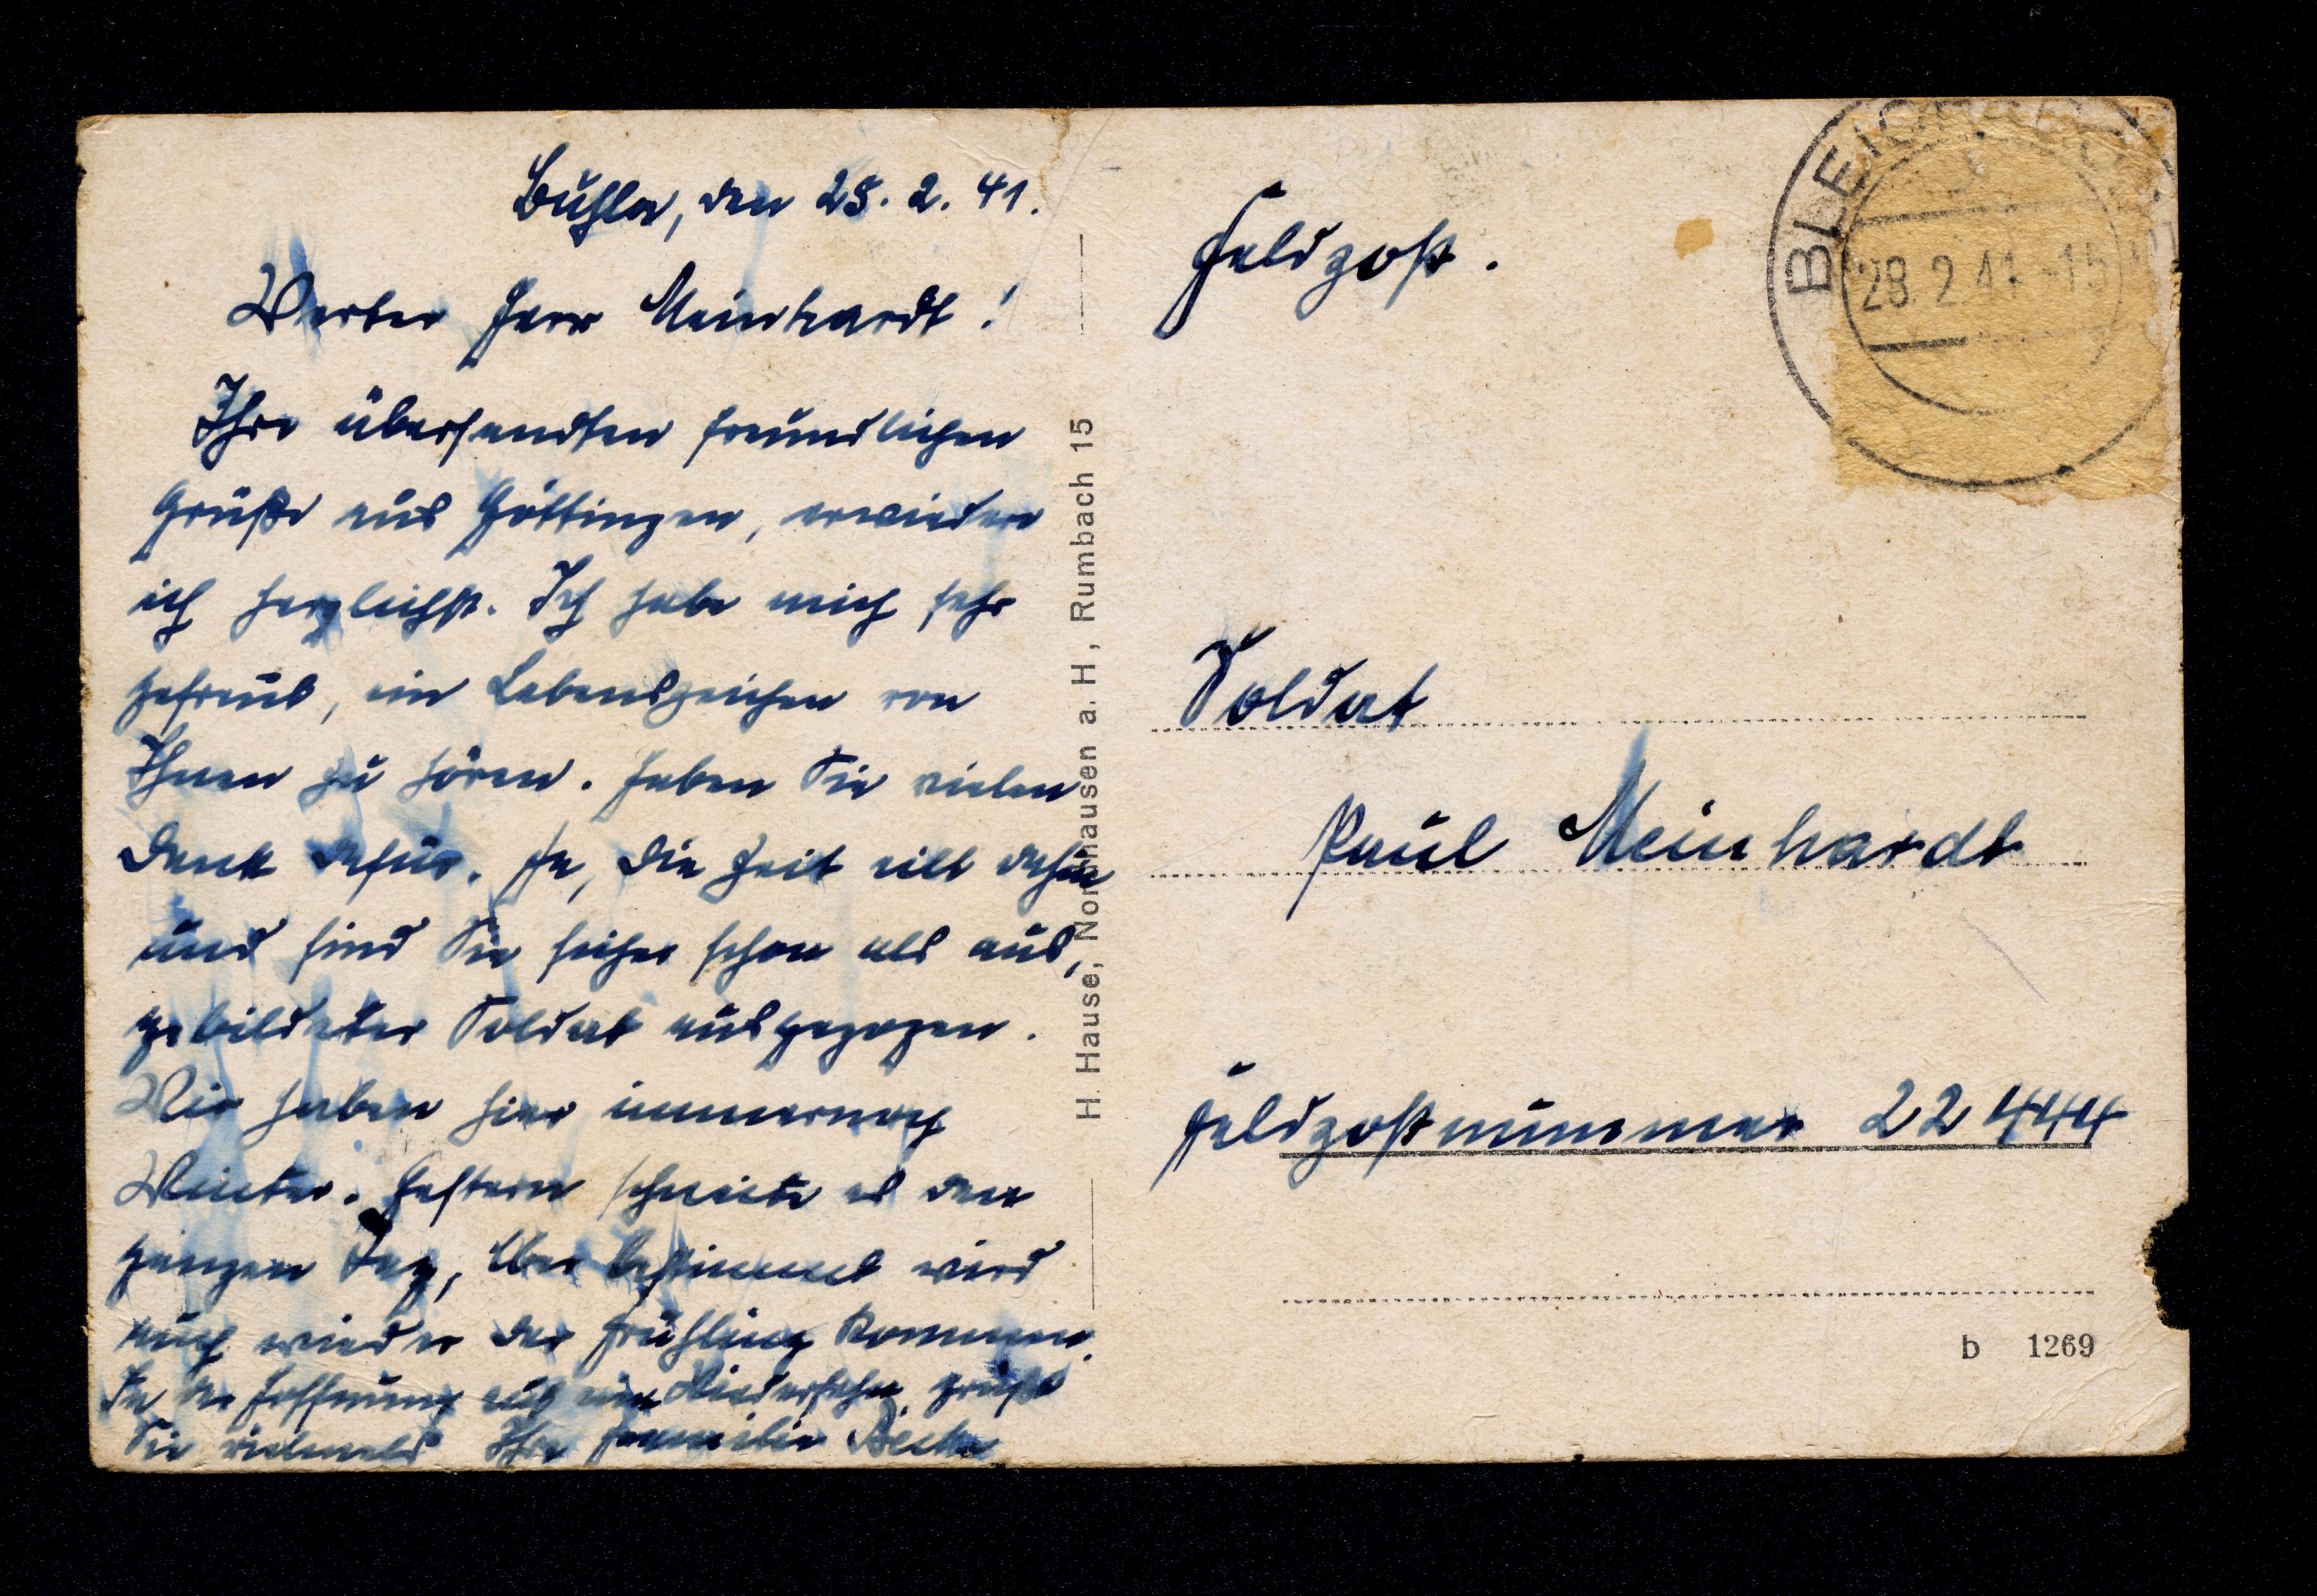 Buhla, den 25. 2. 41.
Werter Herr Meinhardt!
Ihre übersandten freundlichen
Grüße aus Göttingen, erwiedere
ich herzlichst. Ich habe mich sehr
gefreut, ein Lebenszeichen von
Ihnen zu hören. Haben Sie vielen
Dank dafür. Ja, die Zeit eilt dahin
und sind Sie sicher schon als aus,
gebildeter Soldat ausgezogen.
Wir haben hier immernoch
Winter. Gestern schneite es den
ganzen Tag, Aber bestimmt wird
auch wieder der Frühling kommen.
In der Hoffnung auf ein Wiedersehn, grüßt
Sie vielmals Ihre Familie
H. Hause, Nordhausen a. H, Rumbach 15
Feldpost.
BLEICHERODE
28. 2 41 -15
Soldat
Paul Meinhardt
Feldpostnummer 22 444
b 1269